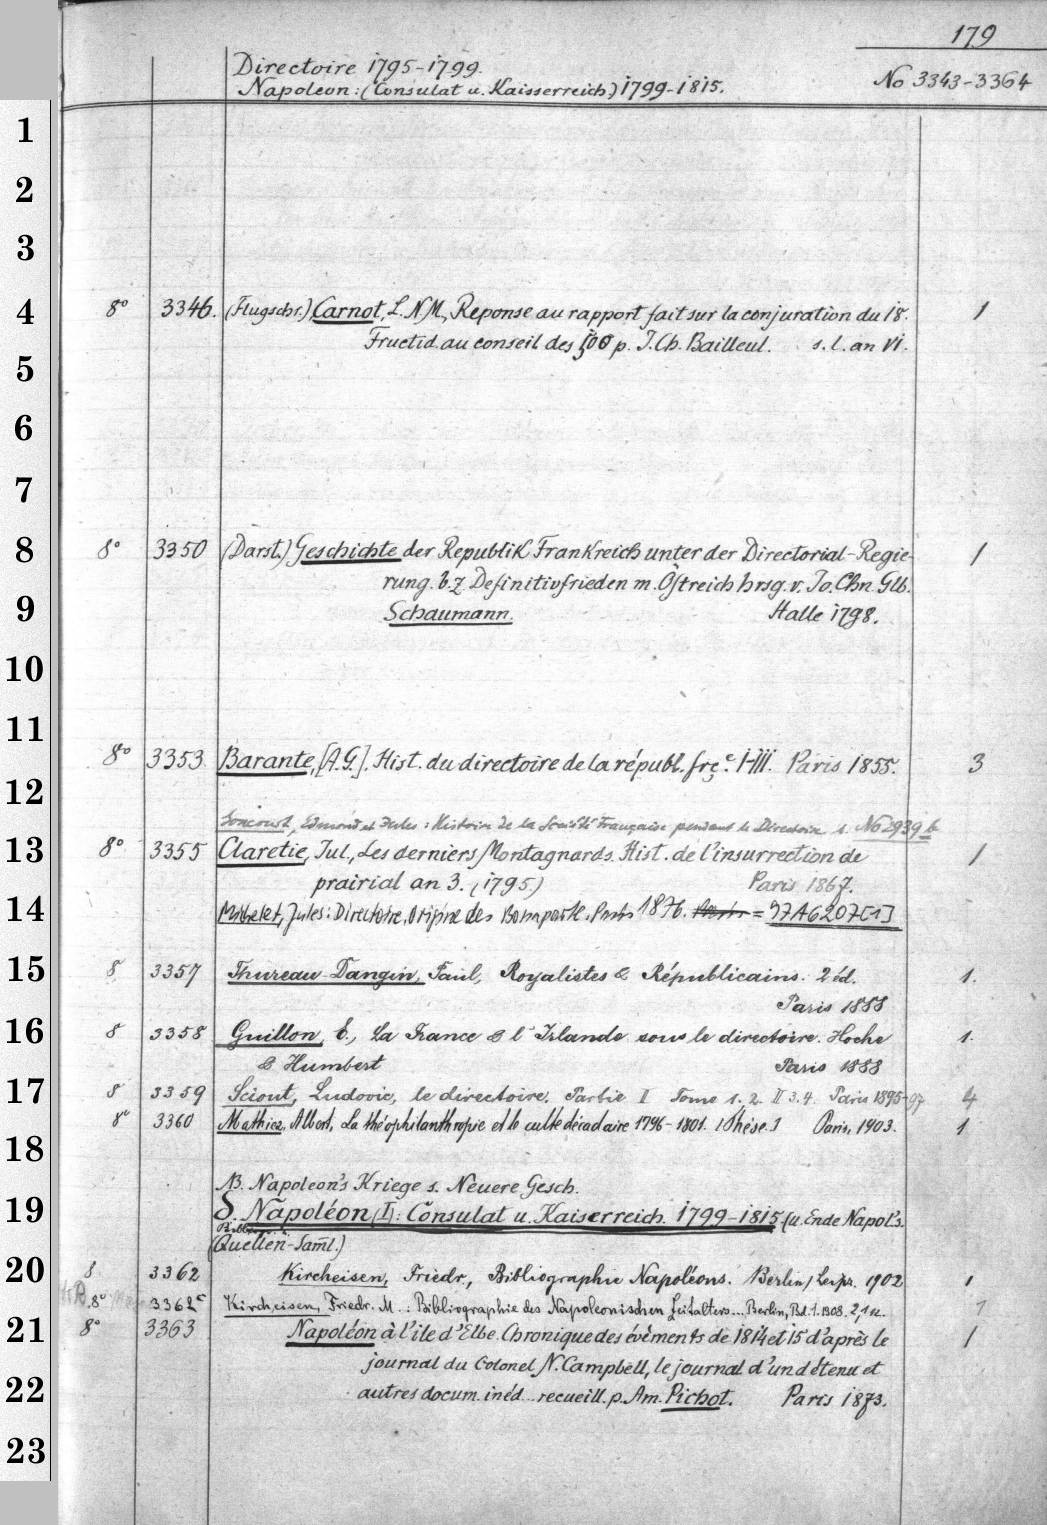 179
Directoire 1795-1799.
Napoleon: (Consulat u. Kaisserreich) 1799-1815.
No 3343-3364
1
2
3
4
8° 3346. (Flugschr.) Carnot, L. N. M., Reponse au rapport fait sur la conjuration du 18. 1
Fructid. au conseil des 500 p. J. Ch. Bailleul. s. l. an VI.
5
6
7
8
8° 3350 (Darst.) Geschichte der Republik Frankreich unter der Directorial-Regie- 1
rung. b. z. Definitivfrieden m. Östreich hrsg. v. Jo. Chn. Glb.
9
Schaumann. Halle 1798.
10
11
8° 3353 Barante, [A.G.]. Hist. du directoire de la républ. frçe. I-III. Paris 1855. 3
12
Goncourt, Edmond et Jules: Histoire de la Société Française pendant le Directoire s. No 2939 b
13
8° 3355 Claretie, Jul., Les derniers Montagnards. Hist. de l'insurrection de 1
prairial an 3. (1795.) Paris 1867.
14
Michelet, Jules: Directoire. Origine des Bonaparte. Paris 1876. Paris = 97A6207[1]
15
8 3357 Thureau-Dangin, Paul, Royalistes & Républicains. 2 éd. 1.
Paris 1888
16
8 3358 Guillon, E., La France & l'Irlande sous le directoire. Hoche 1.
& Humbert Paris 1888
17
8 3359 Sciout, Ludovic, le directoire. Partie I Tome 1. 2. II 3. 4. Paris 1895-97 4
8° 3360 Mathiez, Albert, La théophilanthropie et le culte décadaire 1796-1801. [Thèse.] Paris, 1903. 1
18
NB. Napoleon's Kriege s. Neuere Gesch.
19
δ. Napoléon (I): Consulat u. Kaiserreich. 1799-1815 (u. Ende Napol's.
(Quellen-Saml.)
20
8 3362 Kircheisen, Friedr., Bibliographie Napoléons. Berlin/Leipz. 1902 1
8° 3362c Kircheisen, Friedr. M.: Bibliographie des Napoleonischen Zeitalters... Berlin, Bd. 1. 1908. 2,1 1
21
8° 3363 Napoléon à l'ile d'Elbe. Chronique des évèments de 1814 et 15 d'après le 1
journal du Colonel N. Campbell, le journal d'un détenu et
22
autres docum. inéd... recueill. p. Am. Pichot. Paris 1873.
23